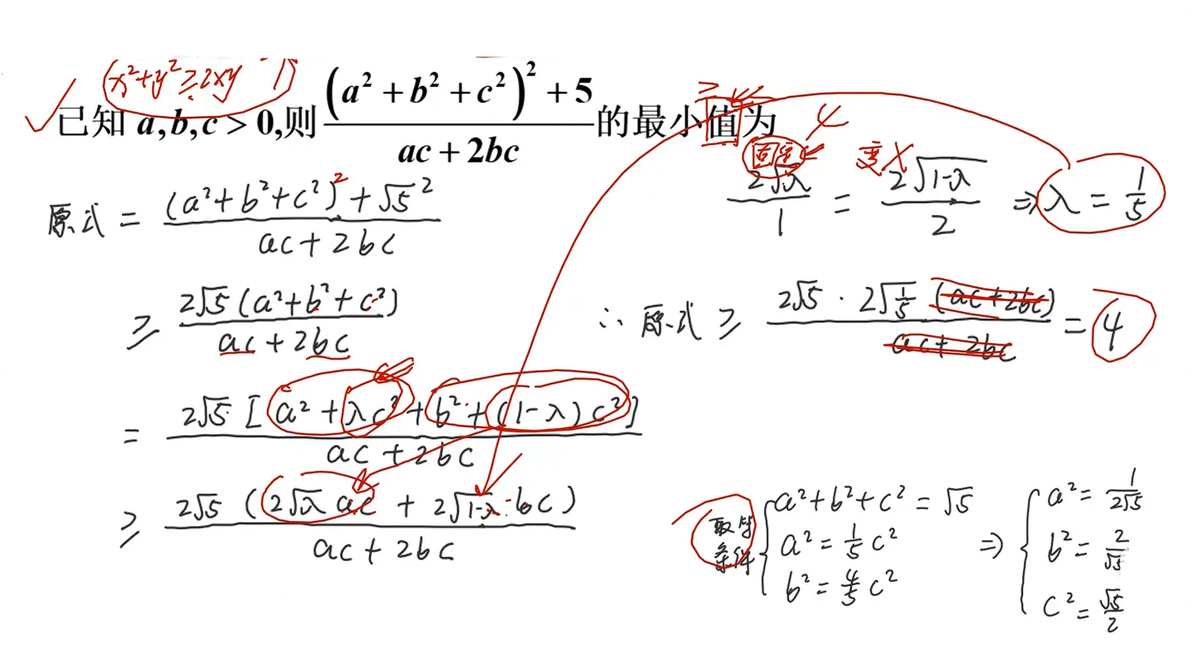 (x²+y²≥2xy)
已知 a,b,c > 0,则 \frac{(a²+b²+c²)²+5}{ac+2bc} 的最小值为
原式 = \frac{(a²+b²+c²)²+√5²}{ac+2bc}
≥ \frac{2√5(a²+b²+c²)}{ac+2bc}
= \frac{2√5[a²+λc²+b²+(1-λ)c²]}{ac+2bc}
≥ \frac{2√5(2√λ ac + 2√(1-λ)·bc)}{ac+2bc}
4
固定 变X
\frac{2√λ}{1} = \frac{2√(1-λ)}{2} ⇒ λ = \frac{1}{5}
∴ 原式 ≥ \frac{2√5·2√\frac{1}{5}(ac+2bc)}{ac+2bc} = 4
取等条件 { a²+b²+c²=√5
a²=\frac{1}{5}c²
b²=\frac{4}{5}c²
⇒ { a²=\frac{1}{2√5}
b²=\frac{2}{√5}
c²=\frac{√5}{2}